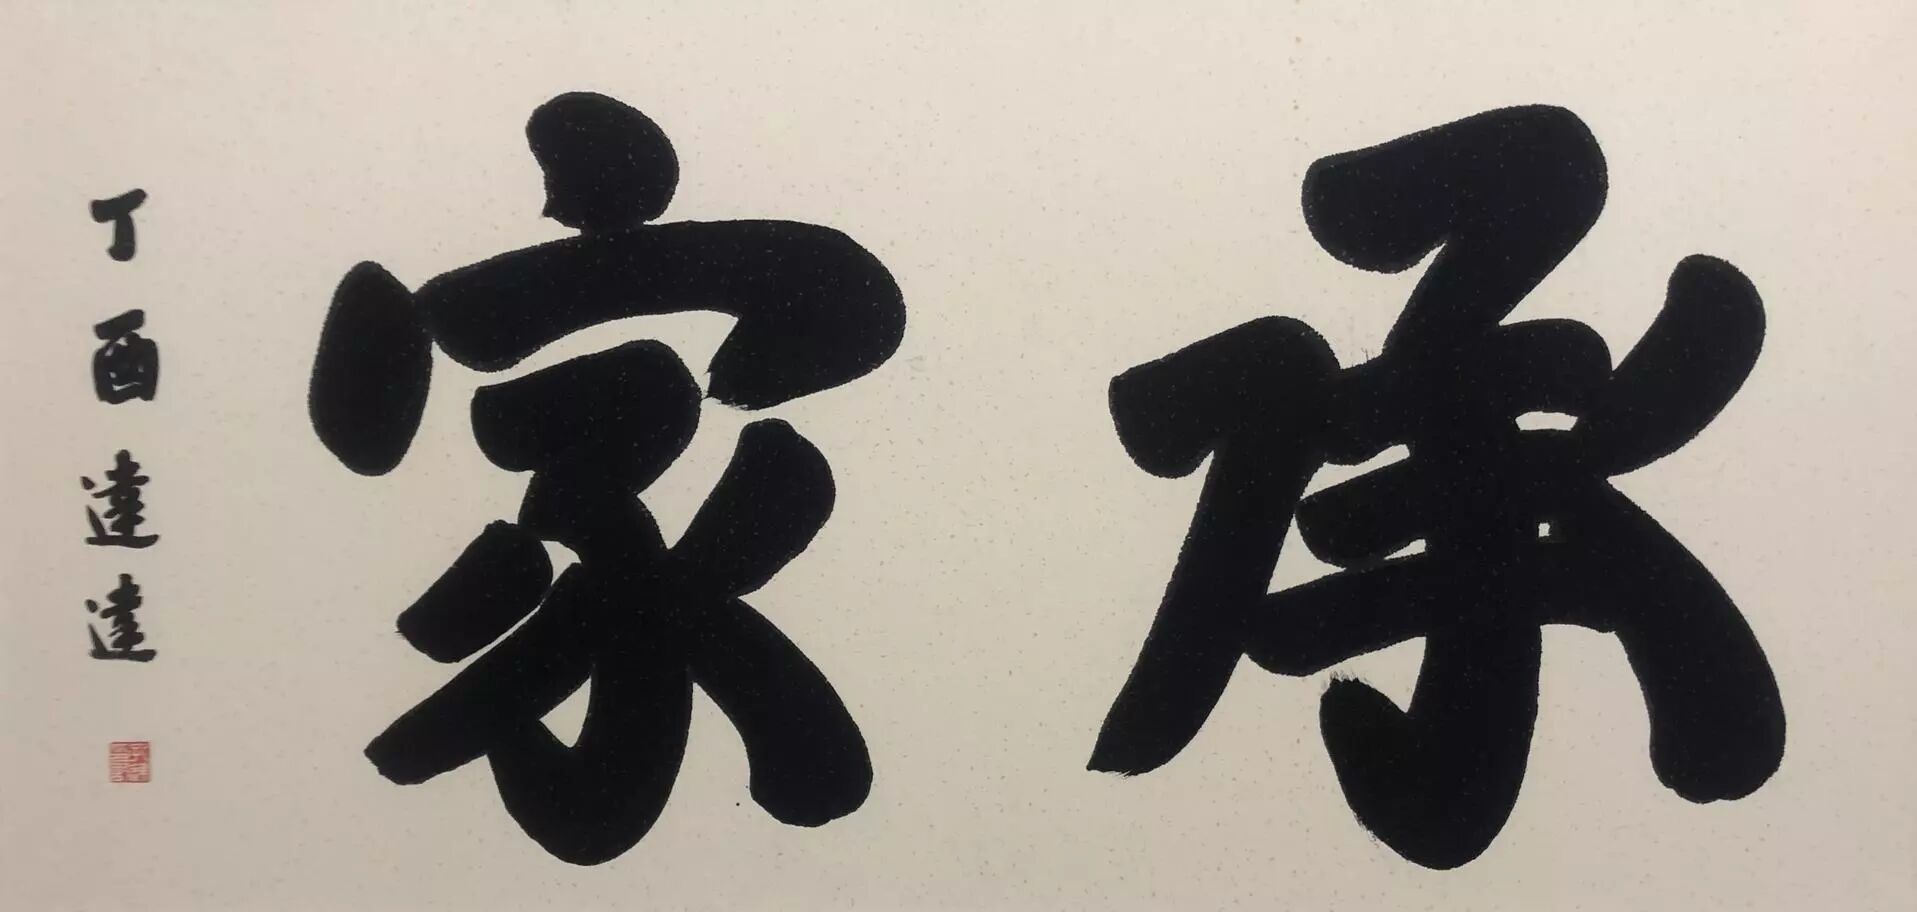 承家
丁酉達建